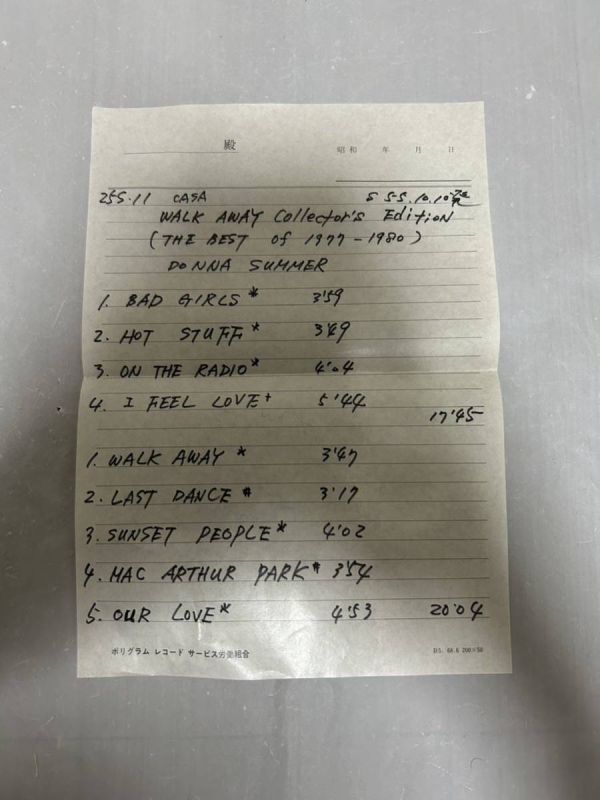 殿
昭和 年 月 日
25S·11 CASA S 55.10.10発
WALK AWAY Collector's Edition
(THE BEST of 1977-1980)
DONNA SUMMER
1. BAD GIRLS* 3'59
2. HOT STUFF* 3'49
3. ON THE RADIO* 4'04
4. I FEEL LOVE+ 5'44
17'45
1. WALK AWAY * 3'47
2. LAST DANCE # 3'17
3. SUNSET PEOPLE* 4'02
4. MAC ARTHUR PARK# 3'54
5. OUR LOVE* 4'53 20'04
ポリグラム レコード サービス労働組合